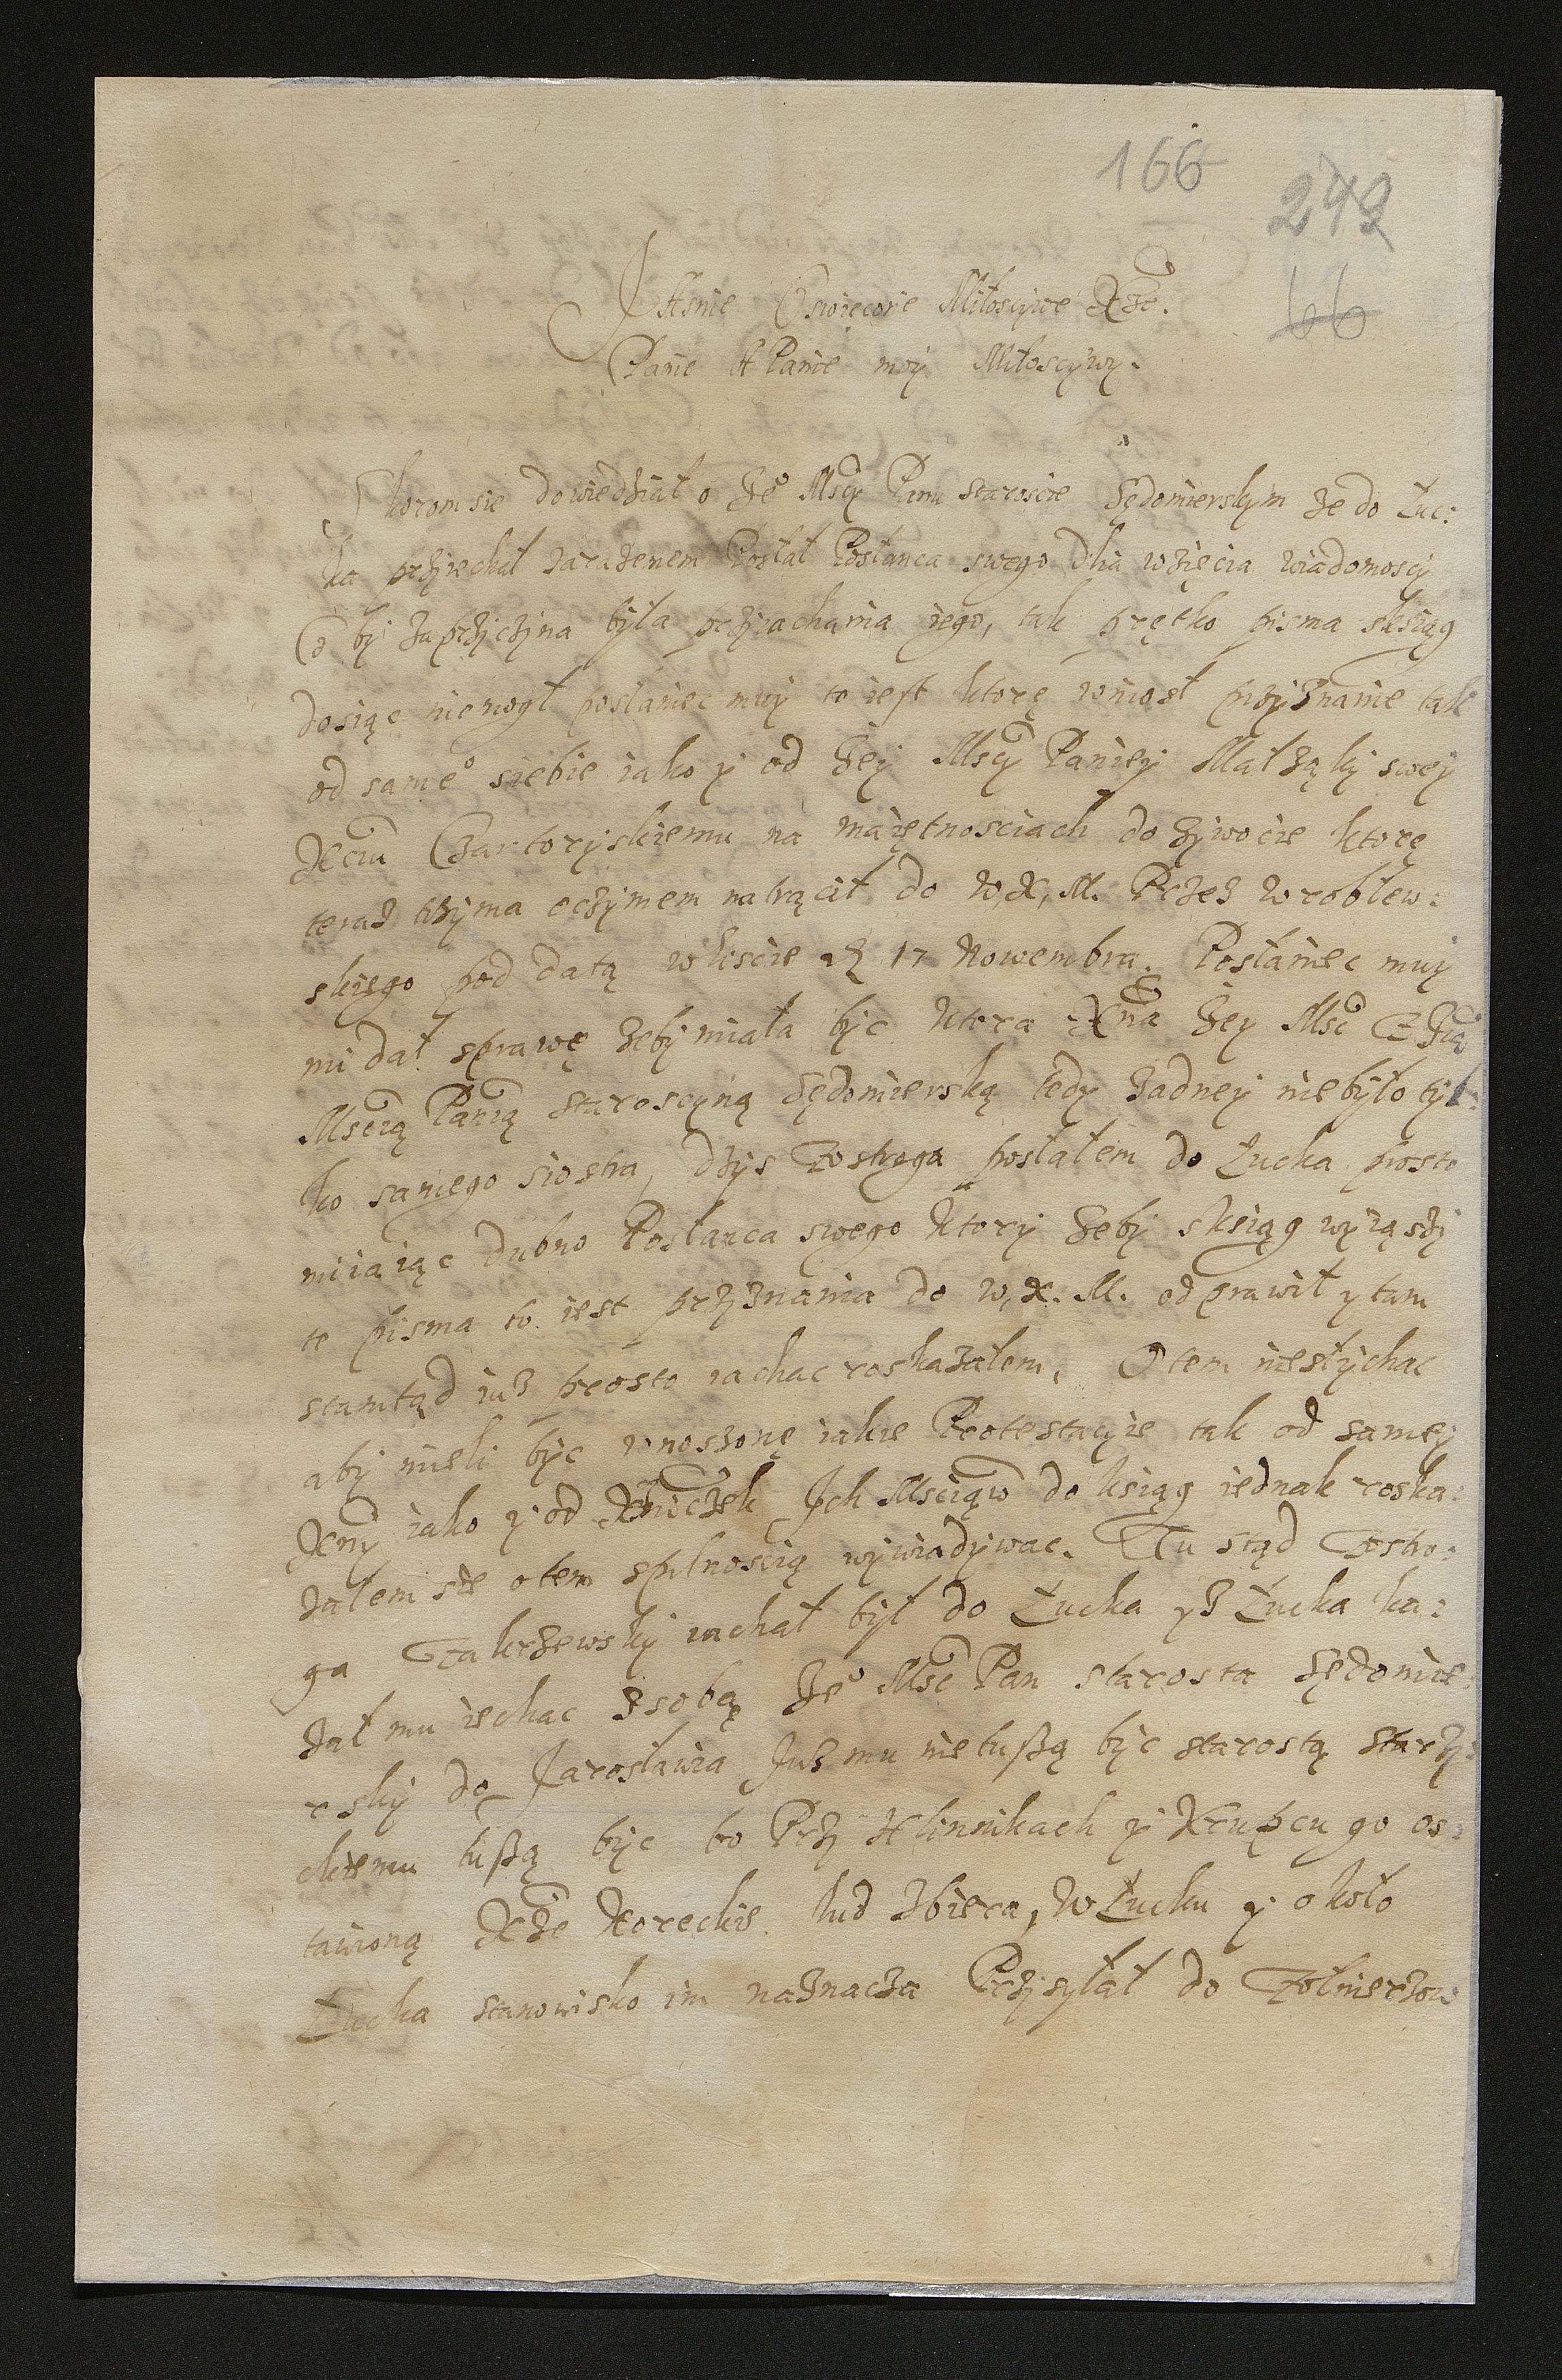 166
249
66
JAsnie Oswięcone Miłosciwe Xże.
Panie A Panie moy Miłosciwy.
Skorom sie dowiedział o Je° Mscy Panu Staroscie Sędomierskym że do Łuc:
ka przyiechał zarazemem Posłał Posłanca swego dlia wzięcia wiadomoscy
Co by za przyczyna była przyiachania iego, tak prętko pisma sksiąg
dosiąc niemogł poslaniec muy to iest ktorę wniosł przyznanie tak
od same° siebie iako y od Jey Mscy Paniey Małżąky swey
Xciu Czartoryskiemu na maiętnosciach do żywocie ktorę
teraz trzyma oczymem natrącił do W, X, M. Przez Wroblew:
skiego pod datą w liscie 17 Nowembra. Posłaniec muy
mi dał sprawę żeby miała byc ktora Xna Jey Msc z Jią
Mscią Panią Staroscyną Sędomierską tedy żadney niebyło tyl:
ko samego siostra, dżys Zostroga posłałem do Łucka prosto
miiaiąc dubno Posłanca swego ktory żeby sksiąg wyiąszy
te pisma to iest przyznania do W, X. M. odprawił y tam
stamtąd iuż prosto iachac roskazałem, O tem niesłychac
aby mieli byc wnoszonę iakie Protestacyie tak od samey
Xeny iako y od Xniczek Jch Msciąw do ksiąg iednak roska:
załem sie otem spilnoscią wywiadywac. Tu stąd Zostro:
ga Zakrzewsky iachał był do Łucka yz Łucka ka:
zał mu iechac zsobą Je° Msc Pan starosta Sędomie:
rsky do Jarosławia Juz mu nie tuszą byc starostą starży:
ckiemu tuszą byc bo Przy Klinnikach y Krupcu go os:
tawioną Xże Koreckie lud zbiera, W Łucku y około
Łucka stanowisko im naznacza Przysyłał do Zołnierzow